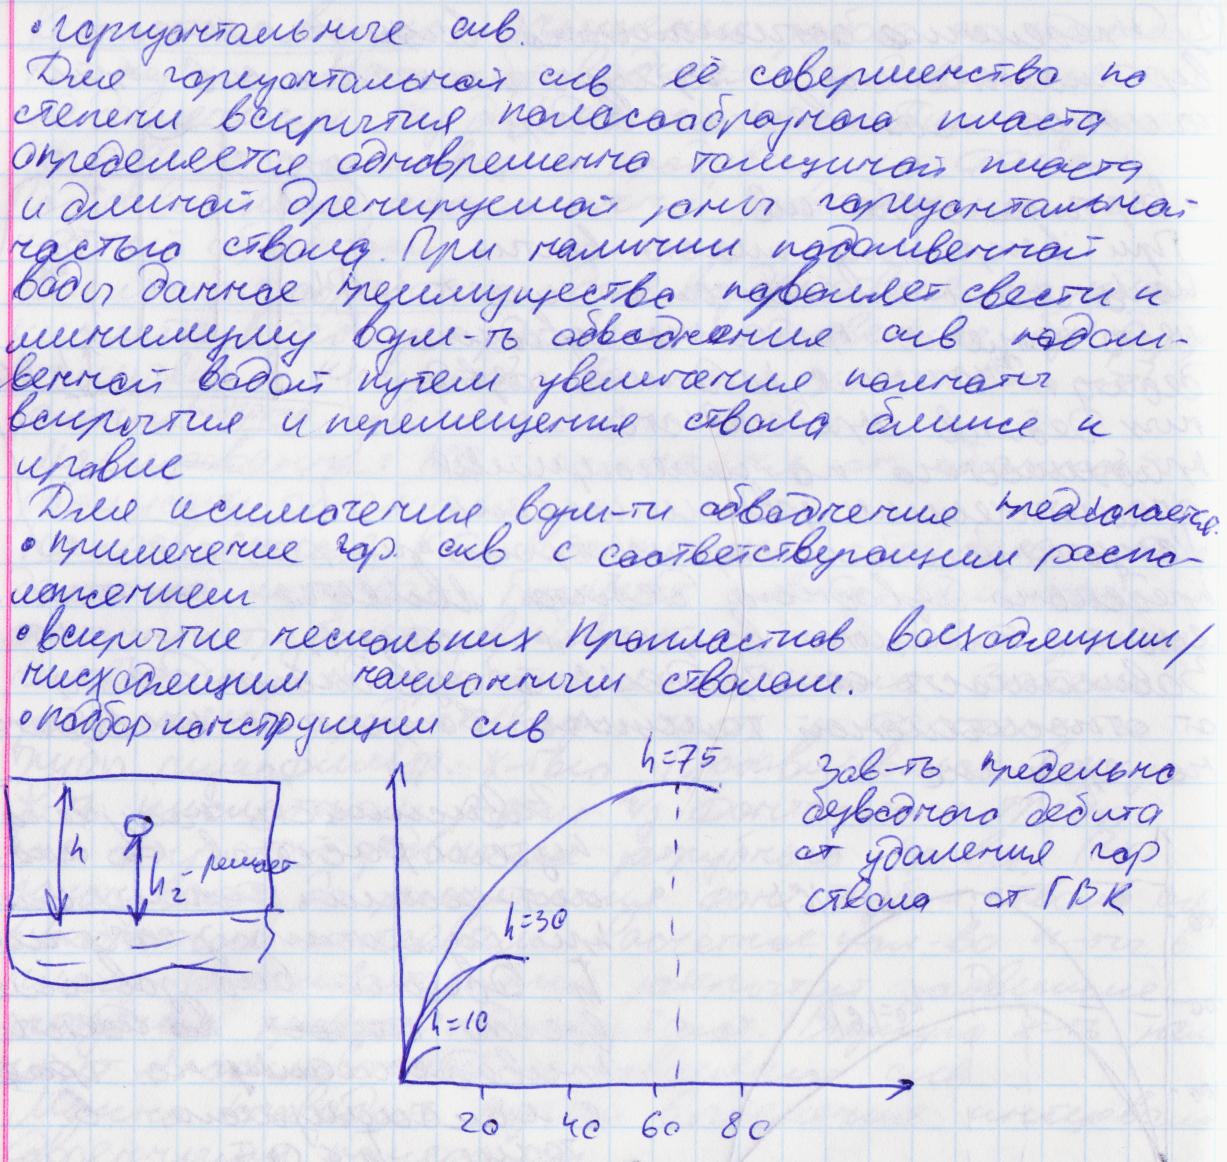 • горизонтальные скв.
Для горизонтальной скв её совершенство по
степени вскрытия полосообразного пласта
определяется одновременно толщиной пласта
и длиной дренируемой зоны горизонтальной
частью ствола. При наличии подошвенной
воды данное преимущество позволяет свести к
минимуму возм-ть обводнения скв подош-
венной водой путем увеличения полноты
вскрытия и перемещения ствола ближе к
кровле
Для исключения возм-ти обводнения предлагается:
• применение гор. скв с соответствующим распо-
ложением
• вскрытие нескольких пропластков восходящим/
нисходящим наклонным стволом.
• подбор конструкции скв
h=75
Зав-ть предельно
безводного дебита
от удаления гор
ствола от ГВК
h
h2 -
h=30
h=10
20 40 60 80